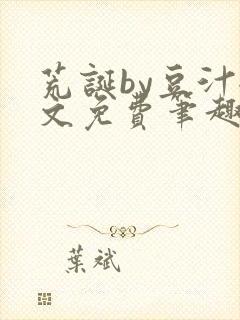 荒誕by豆汁
文免費筆趣
葉斌